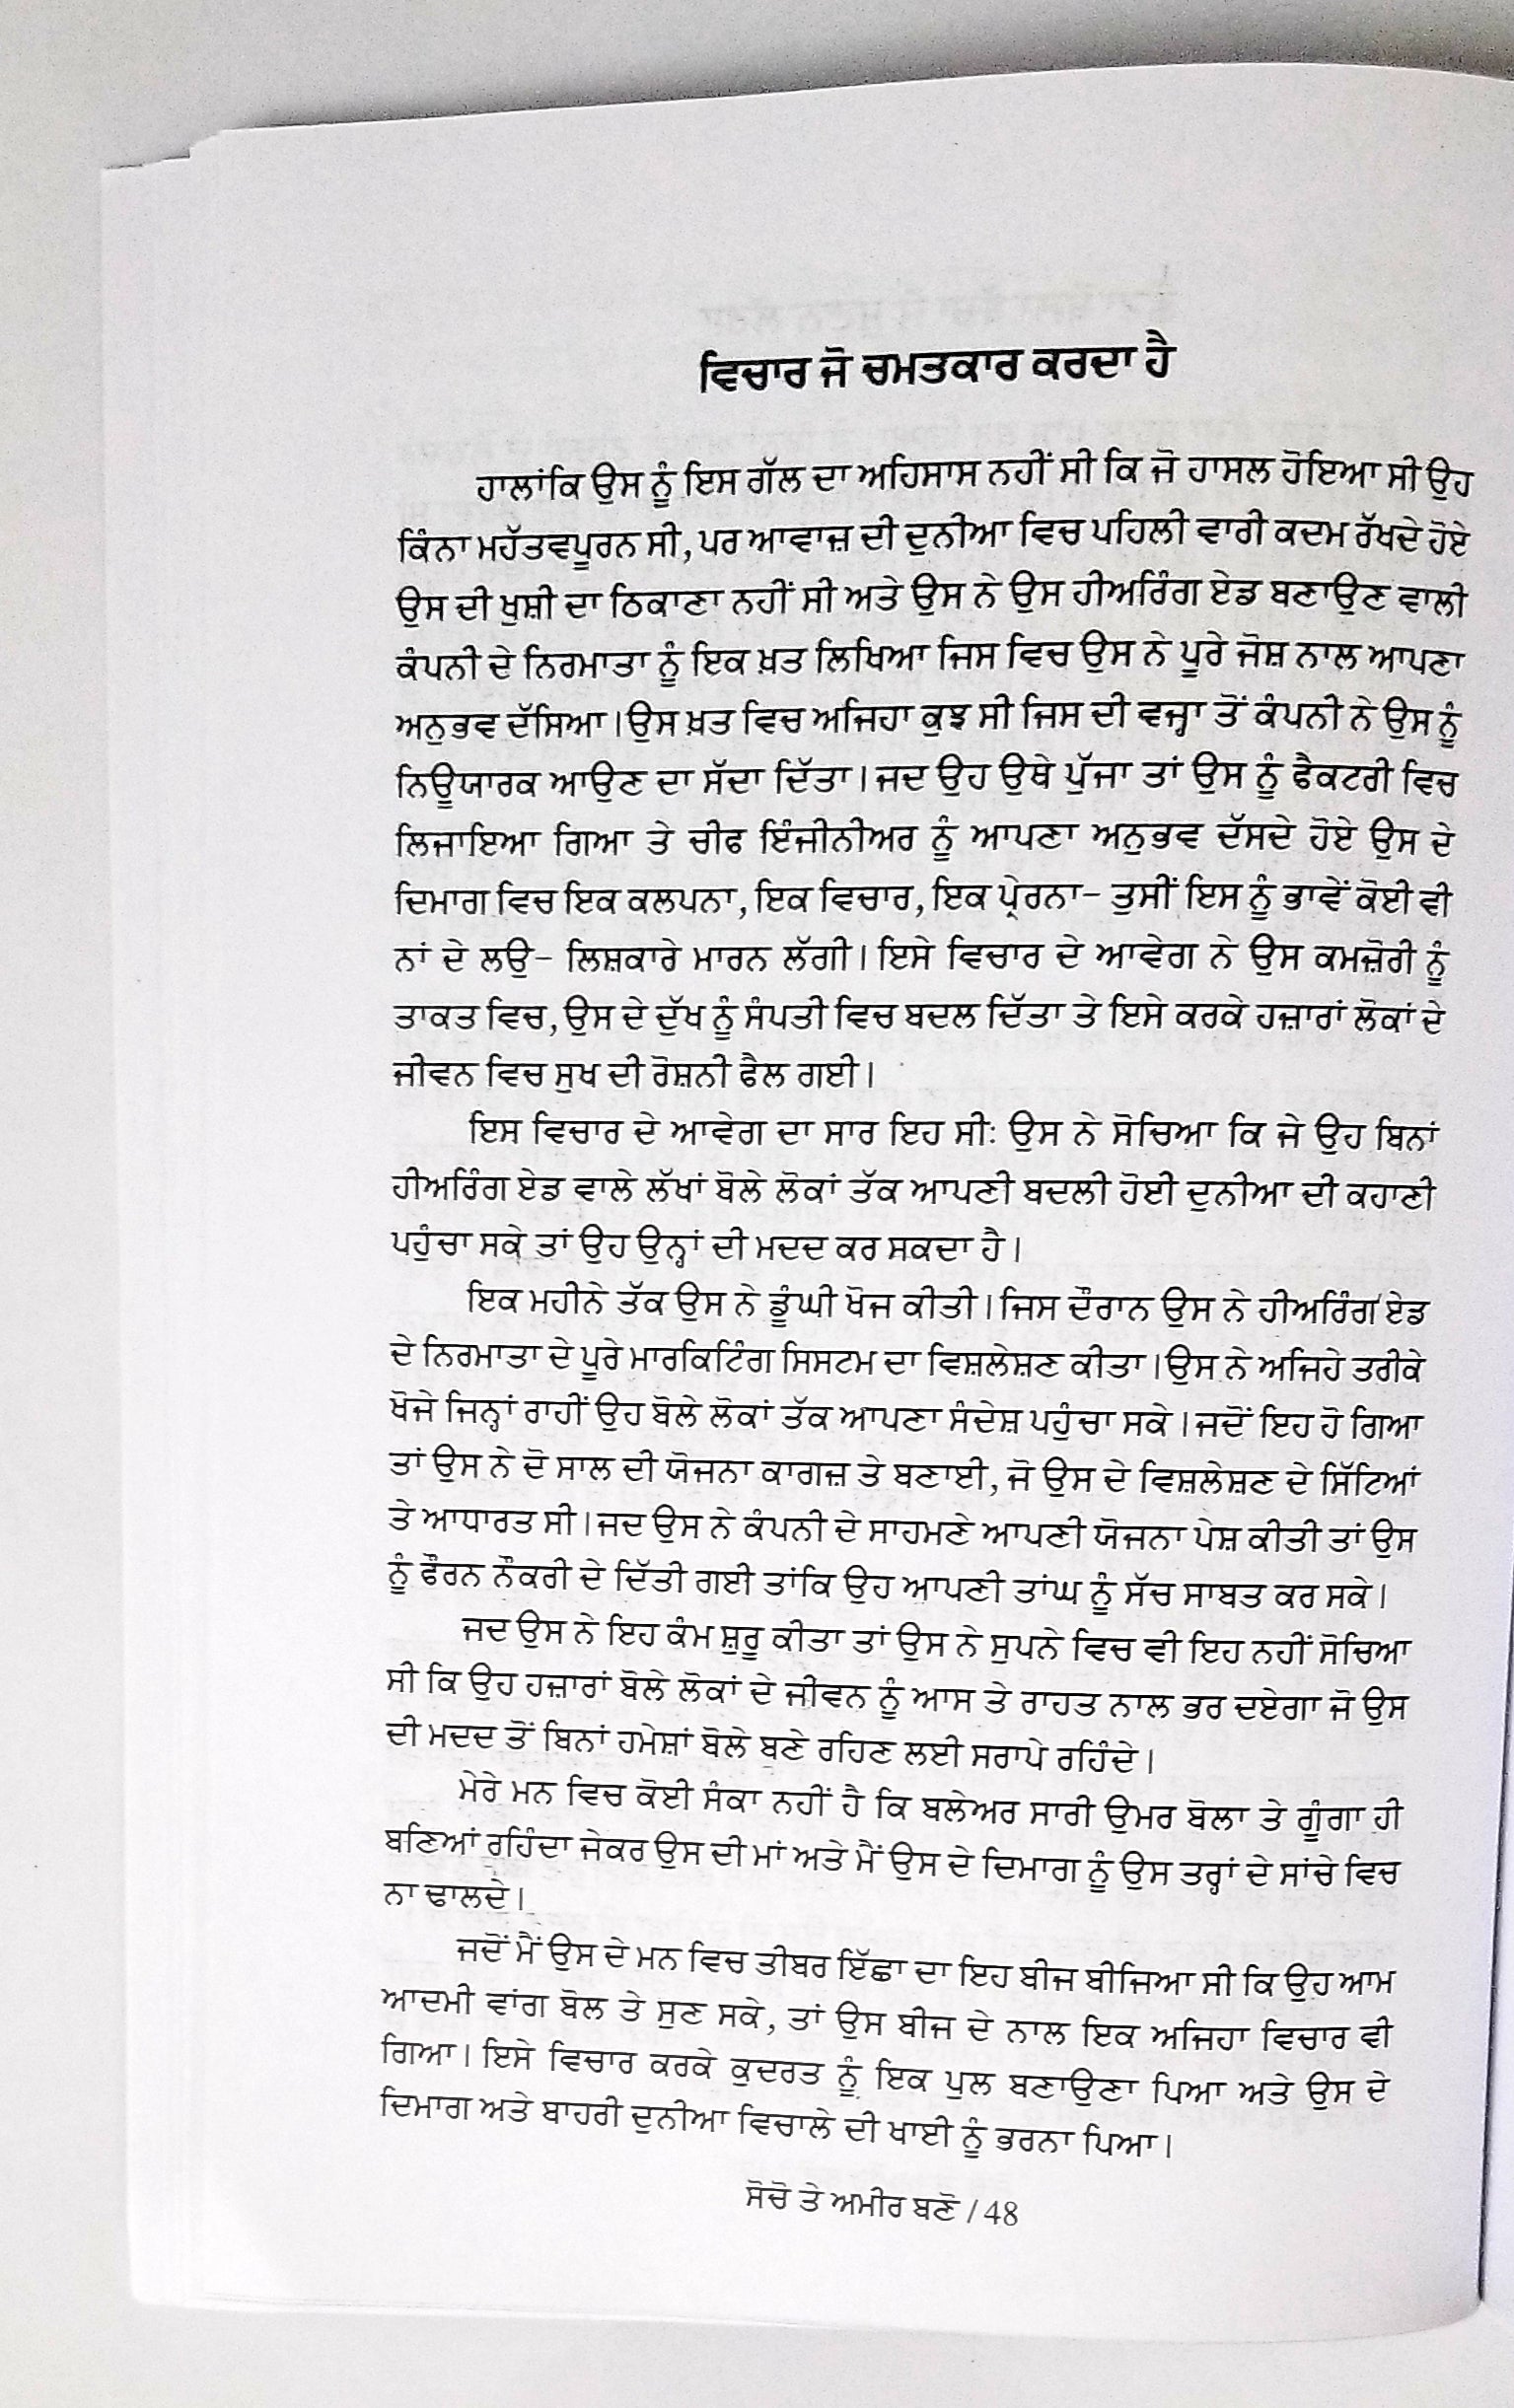 ਵਿਚਾਰ ਜੋ ਚਮਤਕਾਰ ਕਰਦਾ ਹੈ
ਹਾਲਾਂਕਿ ਉਸ ਨੂੰ ਇਸ ਗੱਲ ਦਾ ਅਹਿਸਾਸ ਨਹੀਂ ਸੀ ਕਿ ਜੋ ਹਾਸਲ ਹੋਇਆ ਸੀ ਉਹ
ਕਿੰਨਾ ਮਹੱਤਵਪੂਰਨ ਸੀ, ਪਰ ਆਵਾਜ਼ ਦੀ ਦੁਨੀਆ ਵਿਚ ਪਹਿਲੀ ਵਾਰੀ ਕਦਮ ਰੱਖਦੇ ਹੋਏ
ਉਸ ਦੀ ਖੁਸ਼ੀ ਦਾ ਠਿਕਾਣਾ ਨਹੀਂ ਸੀ ਅਤੇ ਉਸ ਨੇ ਉਸ ਹੀਅਰਿੰਗ ਏਡ ਬਣਾਉਣ ਵਾਲੀ
ਕੰਪਨੀ ਦੇ ਨਿਰਮਾਤਾ ਨੂੰ ਇਕ ਖ਼ਤ ਲਿਖਿਆ ਜਿਸ ਵਿਚ ਉਸ ਨੇ ਪੂਰੇ ਜੋਸ਼ ਨਾਲ ਆਪਣਾ
ਅਨੁਭਵ ਦੱਸਿਆ। ਉਸ ਖ਼ਤ ਵਿਚ ਅਜਿਹਾ ਕੁਝ ਸੀ ਜਿਸ ਦੀ ਵਜ੍ਹਾ ਤੋਂ ਕੰਪਨੀ ਨੇ ਉਸ ਨੂੰ
ਨਿਊਯਾਰਕ ਆਉਣ ਦਾ ਸੱਦਾ ਦਿੱਤਾ। ਜਦ ਉਹ ਉਥੇ ਪੁੱਜਾ ਤਾਂ ਉਸ ਨੂੰ ਫੈਕਟਰੀ ਵਿਚ
ਲਿਜਾਇਆ ਗਿਆ ਤੇ ਚੀਫ ਇੰਜੀਨੀਅਰ ਨੂੰ ਆਪਣਾ ਅਨੁਭਵ ਦੱਸਦੇ ਹੋਏ ਉਸ ਦੇ
ਦਿਮਾਗ ਵਿਚ ਇਕ ਕਲਪਨਾ, ਇਕ ਵਿਚਾਰ, ਇਕ ਪ੍ਰੇਰਨਾ- ਤੁਸੀਂ ਇਸ ਨੂੰ ਭਾਵੇਂ ਕੋਈ ਵੀ
ਨਾਂ ਦੇ ਲਉ- ਲਿਸ਼ਕਾਰੇ ਮਾਰਨ ਲੱਗੀ। ਇਸੇ ਵਿਚਾਰ ਦੇ ਆਵੇਗ ਨੇ ਉਸ ਕਮਜ਼ੋਰੀ ਨੂੰ
ਤਾਕਤ ਵਿਚ, ਉਸ ਦੇ ਦੁੱਖ ਨੂੰ ਸੰਪਤੀ ਵਿਚ ਬਦਲ ਦਿੱਤਾ ਤੇ ਇਸੇ ਕਰਕੇ ਹਜ਼ਾਰਾਂ ਲੋਕਾਂ ਦੇ
ਜੀਵਨ ਵਿਚ ਸੁਖ ਦੀ ਰੋਸ਼ਨੀ ਫੈਲ ਗਈ।
ਇਸ ਵਿਚਾਰ ਦੇ ਆਵੇਗ ਦਾ ਸਾਰ ਇਹ ਸੀ: ਉਸ ਨੇ ਸੋਚਿਆ ਕਿ ਜੇ ਉਹ ਬਿਨਾਂ
ਹੀਅਰਿੰਗ ਏਡ ਵਾਲੇ ਲੱਖਾਂ ਬੋਲੇ ਲੋਕਾਂ ਤੱਕ ਆਪਣੀ ਬਦਲੀ ਹੋਈ ਦੁਨੀਆ ਦੀ ਕਹਾਣੀ
ਪਹੁੰਚਾ ਸਕੇ ਤਾਂ ਉਹ ਉਨ੍ਹਾਂ ਦੀ ਮਦਦ ਕਰ ਸਕਦਾ ਹੈ।
ਇਕ ਮਹੀਨੇ ਤੱਕ ਉਸ ਨੇ ਡੂੰਘੀ ਖੋਜ ਕੀਤੀ। ਜਿਸ ਦੌਰਾਨ ਉਸ ਨੇ ਹੀਅਰਿੰਗ ਏਡ
ਦੇ ਨਿਰਮਾਤਾ ਦੇ ਪੂਰੇ ਮਾਰਕਿਟਿੰਗ ਸਿਸਟਮ ਦਾ ਵਿਸ਼ਲੇਸ਼ਣ ਕੀਤਾ। ਉਸ ਨੇ ਅਜਿਹੇ ਤਰੀਕੇ
ਖੋਜੇ ਜਿਨ੍ਹਾਂ ਰਾਹੀਂ ਉਹ ਬੋਲੇ ਲੋਕਾਂ ਤੱਕ ਆਪਣਾ ਸੰਦੇਸ਼ ਪਹੁੰਚਾ ਸਕੇ। ਜਦੋਂ ਇਹ ਹੋ ਗਿਆ
ਤਾਂ ਉਸ ਨੇ ਦੋ ਸਾਲ ਦੀ ਯੋਜਨਾ ਕਾਗਜ਼ ਤੇ ਬਣਾਈ, ਜੋ ਉਸ ਦੇ ਵਿਸ਼ਲੇਸ਼ਣ ਦੇ ਸਿੱਟਿਆਂ
ਤੇ ਆਧਾਰਤ ਸੀ। ਜਦ ਉਸ ਨੇ ਕੰਪਨੀ ਦੇ ਸਾਹਮਣੇ ਆਪਣੀ ਯੋਜਨਾ ਪੇਸ਼ ਕੀਤੀ ਤਾਂ ਉਸ
ਨੂੰ ਫੌਰਨ ਨੌਕਰੀ ਦੇ ਦਿੱਤੀ ਗਈ ਤਾਂਕਿ ਉਹ ਆਪਣੀ ਤਾਂਘ ਨੂੰ ਸੱਚ ਸਾਬਤ ਕਰ ਸਕੇ।
ਜਦ ਉਸ ਨੇ ਇਹ ਕੰਮ ਸ਼ੁਰੂ ਕੀਤਾ ਤਾਂ ਉਸ ਨੇ ਸੁਪਨੇ ਵਿਚ ਵੀ ਇਹ ਨਹੀਂ ਸੋਚਿਆ
ਸੀ ਕਿ ਉਹ ਹਜ਼ਾਰਾਂ ਬੋਲੇ ਲੋਕਾਂ ਦੇ ਜੀਵਨ ਨੂੰ ਆਸ ਤੇ ਰਾਹਤ ਨਾਲ ਭਰ ਦਏਗਾ ਜੋ ਉਸ
ਦੀ ਮਦਦ ਤੋਂ ਬਿਨਾਂ ਹਮੇਸ਼ਾਂ ਬੋਲੇ ਬਣੇ ਰਹਿਣ ਲਈ ਸਰਾਪੇ ਰਹਿੰਦੇ।
ਮੇਰੇ ਮਨ ਵਿਚ ਕੋਈ ਸੰਕਾ ਨਹੀਂ ਹੈ ਕਿ ਬਲੇਅਰ ਸਾਰੀ ਉਮਰ ਬੋਲਾ ਤੇ ਗੂੰਗਾ ਹੀ
ਬਣਿਆਂ ਰਹਿੰਦਾ ਜੇਕਰ ਉਸ ਦੀ ਮਾਂ ਅਤੇ ਮੈਂ ਉਸ ਦੇ ਦਿਮਾਗ ਨੂੰ ਉਸ ਤਰ੍ਹਾਂ ਦੇ ਸਾਂਚੇ ਵਿਚ
ਨਾ ਢਾਲਦੇ।
ਜਦੋਂ ਮੈਂ ਉਸ ਦੇ ਮਨ ਵਿਚ ਤੀਬਰ ਇੱਛਾ ਦਾ ਇਹ ਬੀਜ ਬੀਜਿਆ ਸੀ ਕਿ ਉਹ ਆਮ
ਆਦਮੀ ਵਾਂਗ ਬੋਲ ਤੇ ਸੁਣ ਸਕੇ, ਤਾਂ ਉਸ ਬੀਜ ਦੇ ਨਾਲ ਇਕ ਅਜਿਹਾ ਵਿਚਾਰ ਵੀ
ਗਿਆ। ਇਸੇ ਵਿਚਾਰ ਕਰਕੇ ਕੁਦਰਤ ਨੂੰ ਇਕ ਪੁਲ ਬਣਾਉਣਾ ਪਿਆ ਅਤੇ ਉਸ ਦੇ
ਦਿਮਾਗ ਅਤੇ ਬਾਹਰੀ ਦੁਨੀਆ ਵਿਚਾਲੇ ਦੀ ਖਾਈ ਨੂੰ ਭਰਨਾ ਪਿਆ।
ਸੋਚੋ ਤੇ ਅਮੀਰ ਬਣੋ / 48